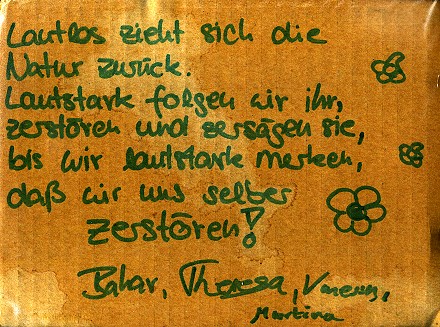 Lautlos zieht sich die
Natur zurück.
Lautstark folgen wir ihr,
zerstören und zersägen sie,
bis wir lautstark merken,
daß wir uns selber
zerstören!
Bahar, Theresa, Vanessa,
Martina